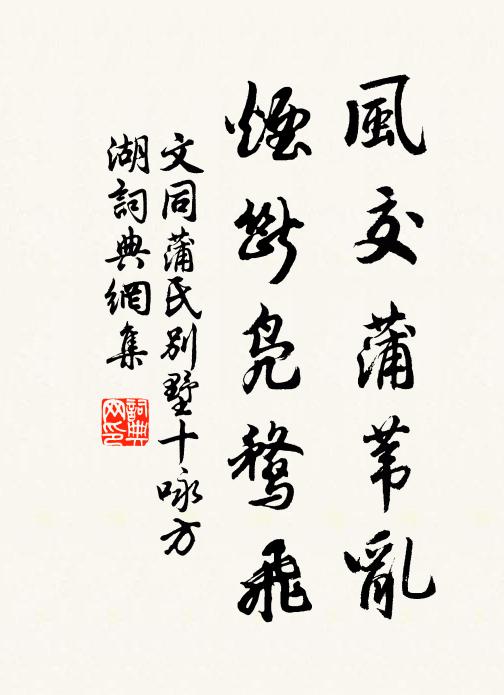 風交蒲葦亂
煙斷鳧鶩飛
文同蒲氏別墅十咏方
湖詞典網集
詞典網印